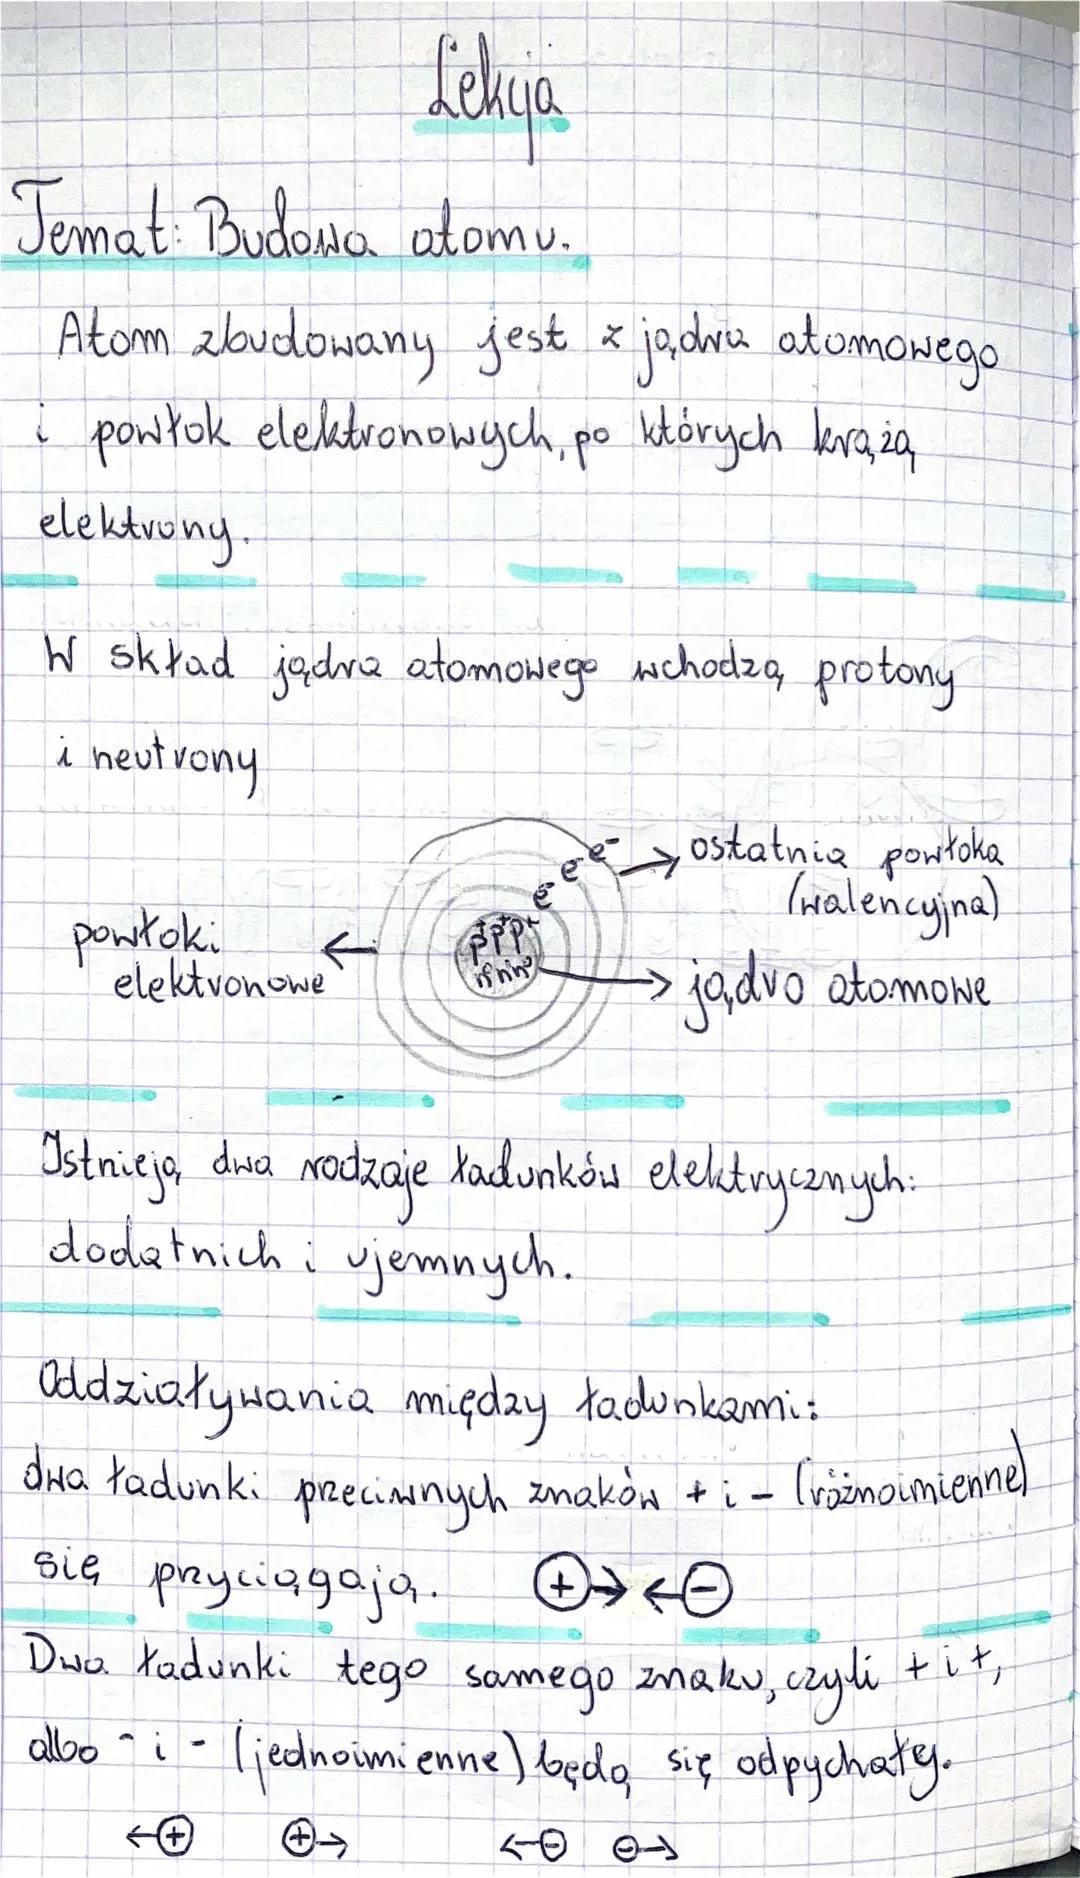 Lekcja
Temat: Budowa atomu.
Atom zbudowany jest z jądra atomowego
i powłok elektronowych, po których krążą
elektrony.
W skład jądra atomowego wchodzą protony
i neutrony
e⁻ e⁻ e⁻
ostatnia powłoka
(walencyjna)
powłoki
elektronowe
p⁺ p⁺ p⁺
n⁰ n⁰ n⁰
jądro atomowe
Istnieją dwa rodzaje ładunków elektrycznych:
dodatnich i ujemnych.
Oddziaływania między ładunkami:
dwa ładunki przeciwnych znaków + i - (różnoimienne)
się przyciągają. ⊕→ ←⊖
Dwa ładunki tego samego znaku, czyli + i +,
albo - i - (jednoimienne) będą się odpychały.
←⊕ ⊕→ ←⊖ ⊖→